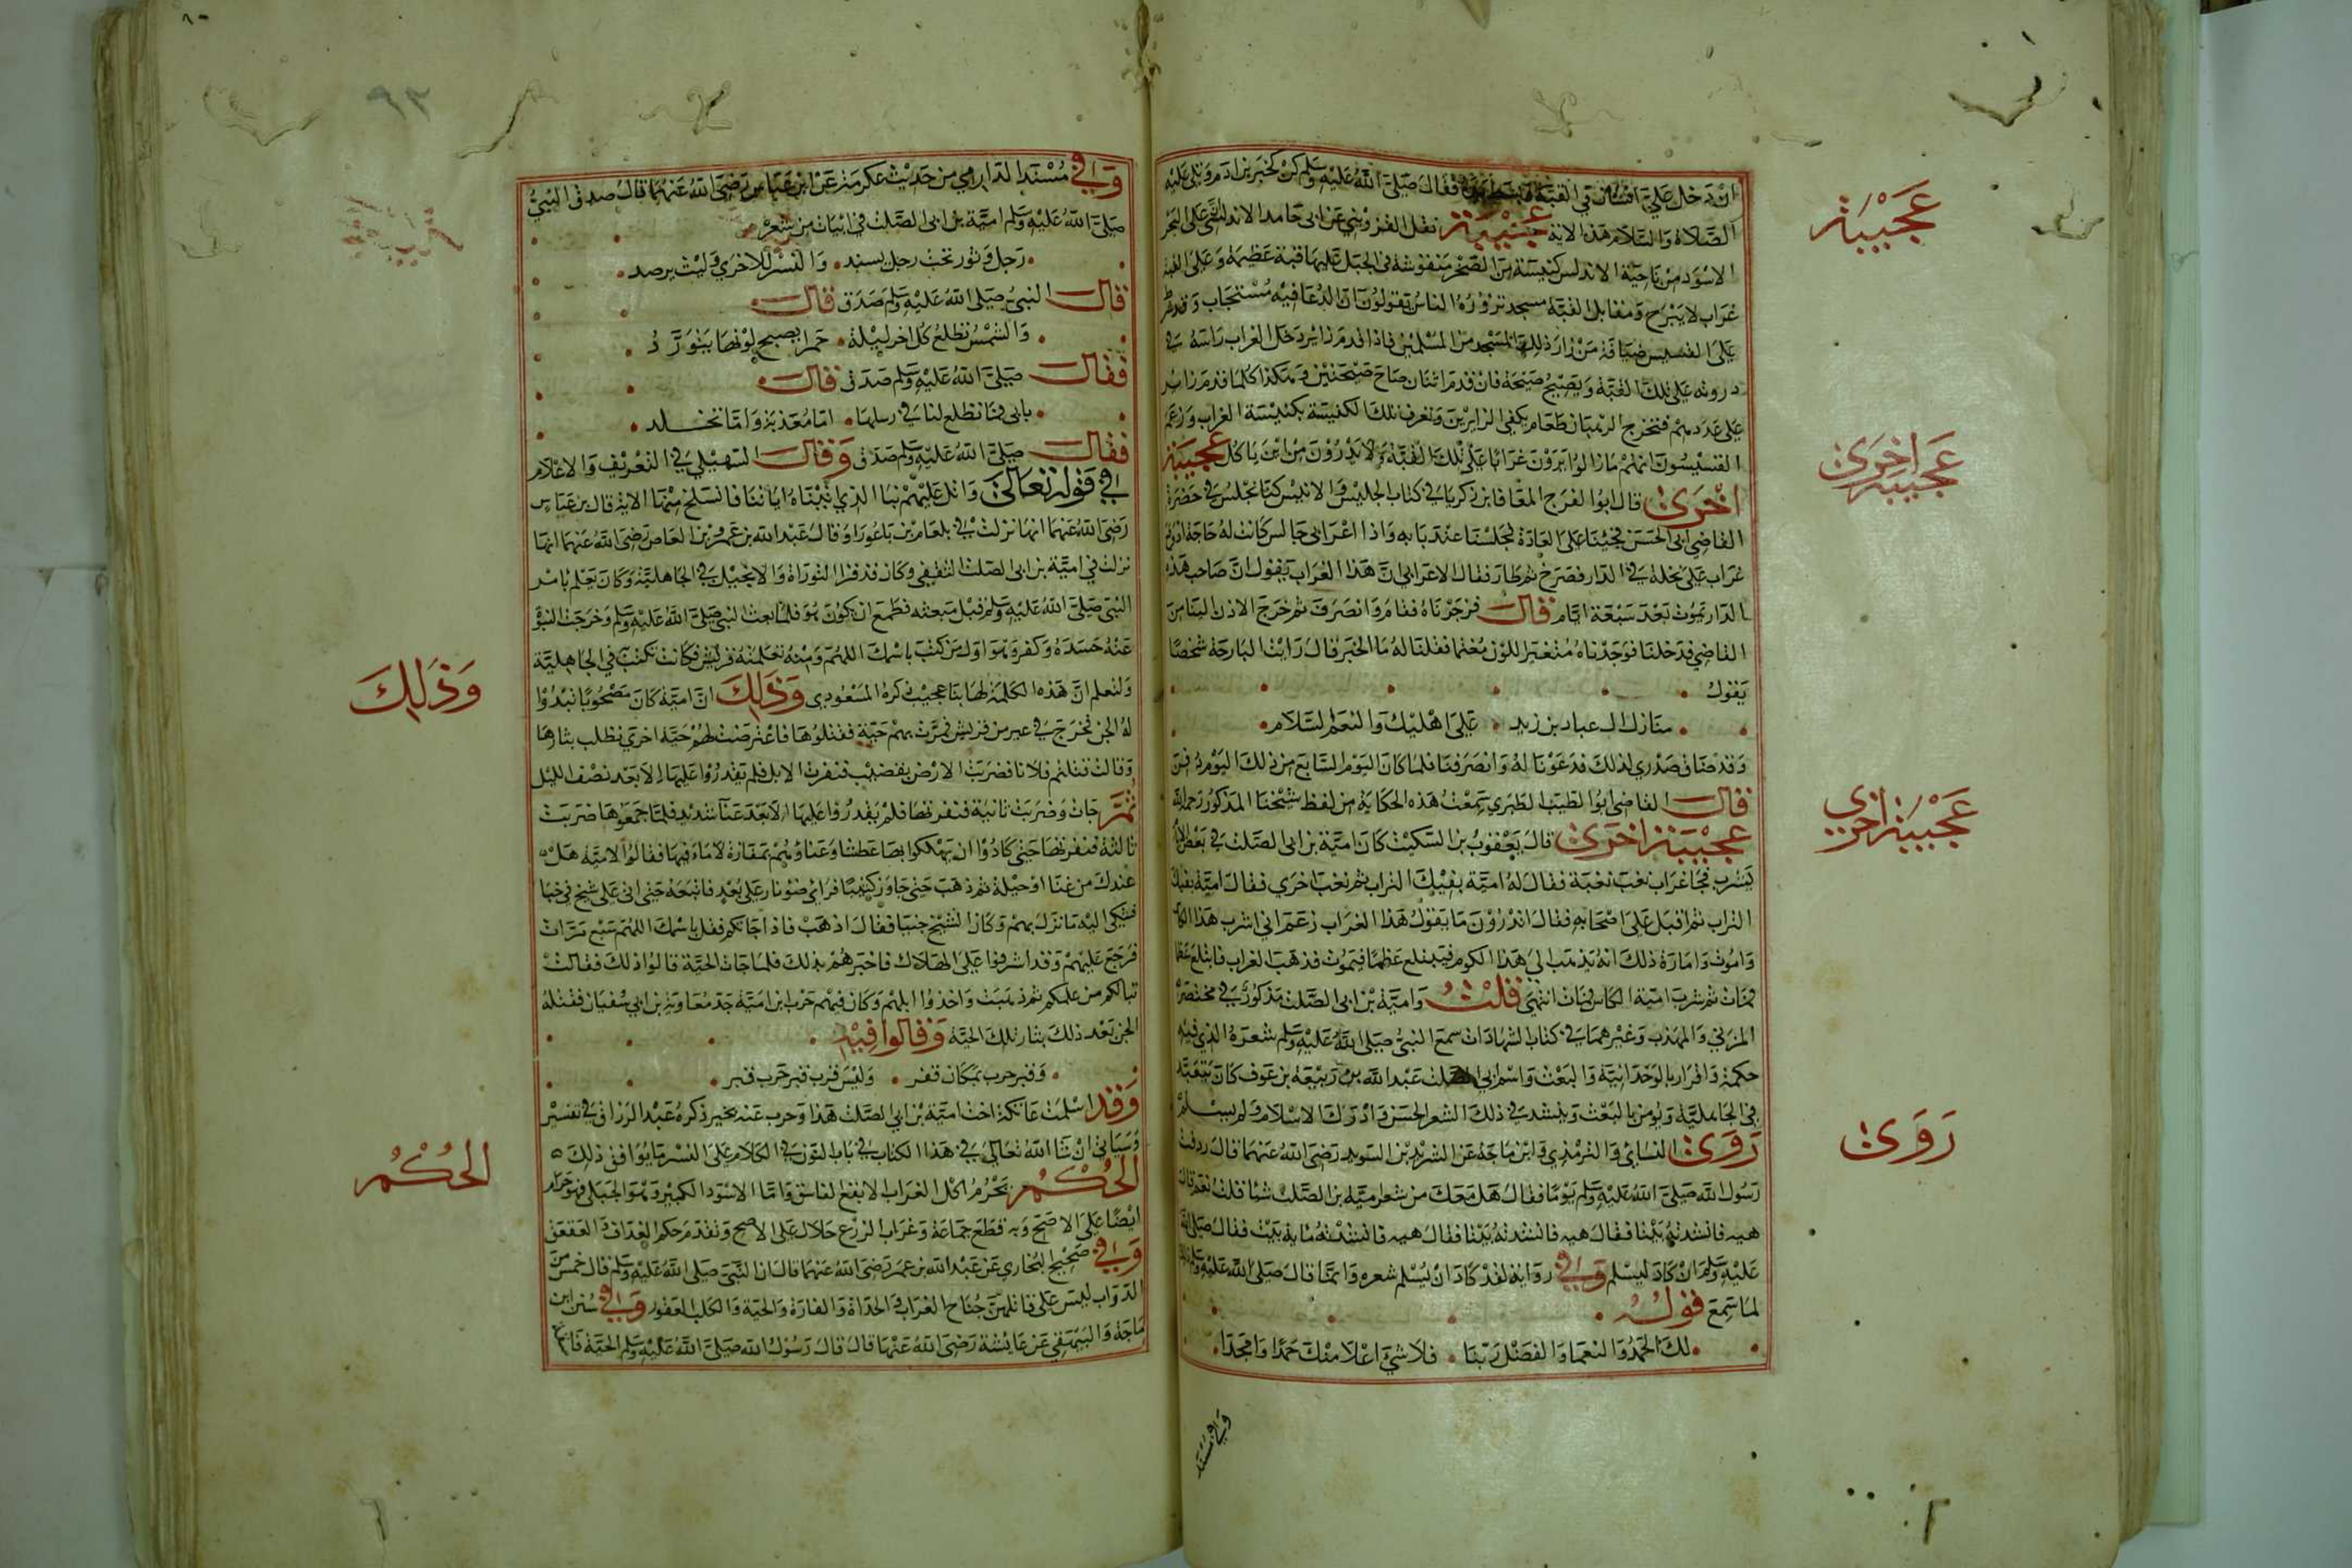 ان دخل علي انسان في الفتنة فقال صلى الله عليه وسلم كن كخير بن ادم وتلى عليه
الصلاة والسلام هذا الاية عجيبة نقل القزويني عن ابى حامد الاندلسي ان على البحر
الاسود من ناحية الاندلس كنيسة من الصخر منقوشة في الجبل عليها قبة عظيمة وعلى القبة
غراب لا يبرح ومقابل القبة مسجد تزوره الناس يقولون ان الدعا فيه مستجاب وقد شرط
على القسيس ضيافة من زار ذلك المسجد من المسلمين فاذا قدم زاير دخل الغراب راسه في
درونه على تلك القبة ويصيح صيحة فان قدم اثنان صاح صيحتين وهكذا كلما قدم زاير
على عددهم فتخرج الرهبان طعام يكفي الزايرين وتعرف تلك الكنيسة بكنيسة الغراب وزعم
القسيسون انهم مازالوا يرون غرابا على تلك القبة ولا يدرون من اين ياكل عجيبة
اخرى قال ابو الفرج المعافا بن زكريا في كتاب الجليس والانيس كنا نجلس في حضرة
القاضي ابى الحسن فجئنا على العادة فجلسنا عند بابه واذا اعرابى جالس كانت له حاجة اذ وقع
غراب على نخلة في الدار فصرخ ثم طار فقال الاعرابي ان هذا الغراب يقول ان صاحب هذه
الدار يموت بعد سبعة ايام قال فزجرناه فقام وانصرف ثم خرج الاذن الينا من
القاضي فدخلنا فوجدناه متغير اللون مغتما فقلنا له ما الخبر قال رايت البارحة شخصا
يقول
منازل ال عباد بن زيد على اهليك والنعم السلام
وقد ضاق صدري لذلك فدعونا له وانصرفنا فلما كان اليوم السابع من ذلك اليوم دفن
قال القاضي ابو الطيب الطبري سمعت هذه الحكاية من لفظ شيخنا المذكور رحمه الله
عجيبة اخرى قال يعقوب بن السكيت كان امية بن ابى الصلت في بعض الايام
يشرب فجا غراب نعب نعبة فقال له امية بفيك التراب ثم نعب اخرى فقال امية بفيك
التراب ثم اقبل على اصحابه فقال اتدرون ما يقول هذا الغراب زعم اني اشرب هذا الكاس
واموت وامارة ذلك انه يذهب الى هذا الكوم فيبتلع عظما فيموت فذهب الغراب فابتلع عظما
فمات ثم شرب امية الكاس فمات انتهى قلت وامية بن ابى الصلت مذكور في مختصر
المزني والمهذب وغيرهما في كتاب الشهادات سمع النبي صلى الله عليه وسلم شعره الذي فيه
حكمة واقرار بالوحدانية والبعث واسم ابي الصلت عبد الله بن ربيعة بن عوف كان يتعبد
في الجاهلية ويومن بالبعث وينشد في ذلك الشعر الحسن وادرك الاسلام ولم يسلم
روى النسائي والترمذي وابن ماجة عن الشريد بن السويد رضى الله عنهما قال ردفت
رسول الله صلى الله عليه وسلم يوما فقال هل معك من شعر امية بن الصلت شيا قلت نعم قال
هيه فانشدته بيتا فقال هيه فانشدته بيتا فقال هيه فانشدته ماية بيت فقال صلى الله
عليه وسلم ان كاد ليسلم وفي رواية لقد كاد ان يسلم شعره وانما قال صلى الله عليه وسلم ذلك
لما سمع قوله
لك الحمد والنعما والفضل ربنا فلا شي اعلا منك حمدا وامجدا
وفي مسند
عجيبة
عجيبة اخرى
عجيبة اخرى
روى
وفي مسند الدارمي من حديث عكرمة عن ابن عباس رضى الله عنهما قال صدق النبي
صلى الله عليه وسلم امية بن ابى الصلت في ابيات من شعر
رجل وثور تحت رجل يسند والنسر للاخرى وليث يرصد
قال النبي صلى الله عليه وسلم صدق قال
والشمس تطلع كل اخر ليلة حمرا يصبح لونها يتورد
فقال صلى الله عليه وسلم صدق قال
يابى فما تطلع لنا في رسلها اما معذبة واما تجلد
فقال صلى الله عليه وسلم صدق وقال السهيلي في التعريف والاعلام
في قوله تعالى واتل عليهم نبا الذي اتيناه اياتنا فانسلخ منها الاية قال بن عباس
رضى الله عنهما انها نزلت في بلعام بن باعورا وقال عبد الله بن عمرو بن العاص رضى الله عنهما انها
نزلت في امية بن ابى الصلت الثقفي وكان قد قرا التوراة والانجيل في الجاهلية وكان يعلم بامر
النبي صلى الله عليه وسلم قبل مبعثه فطمع ان يكون هو فلما بعث النبي صلى الله عليه وسلم وخرجت النبوة
عنه حسده وكفر وهو اول من كتب باسمك اللهم ومنه تعلمته قريش فكانت تكتب في الجاهلية
ولتعلم ان هذه الكلمة لها نبا عجيب ذكره المسعودي وذلك ان امية كان مصحوبا تبدوا
له الجن فخرج في عير من قريش فمرت بهم حية فقتلوها فاعترضت لهم حية اخرى تطلب بثارها
وقالت قتلتم فلانا فضربت الارض بقضيب فنفرت الابل فلم يقدروا عليها الا بعد نصف الليل
ثم جات وضربت ثانية فنفرتها فلم يقدروا عليها الا بعد عنا شديد فلما جمعوها ضربت
ثالثة فنفرتها حتى كادوا ان يهلكوا بها عطشا وعنا وهم بمفازة لا ماء فيها فقالوا لامية هل
عندك من غنا او حيلة ثم ذهب حتى جاوز كثيبا فراى ضو نار على بعد فاتبعه حتى اتى على شيخ في خبا
فشكى اليه ما نزل بهم وكان الشيخ جنيا فقال اذهب فاذا جاتكم فقل باسمك اللهم سبع مرات
فرجع عليهم وقد اشرفوا على الهلاك فاخبرهم بذلك فلما جات الحية قالوا ذلك فقالت
تبا لكم من علمكم ثم ذهبت واخذوا ابلهم وكان فيهم حرب ابن امية جد معاوية بن ابي سفيان فقتله
الجن بعد ذلك بثار تلك الحية وقالوا فيه
وقبر حرب بمكان قفر وليس قرب قبر حرب قبر
وقد اسلمت عاتكة اخت امية بن ابى الصلت هذا وحرب عنه بخير ذكره عبد الرزاق في تفسير
وسياتي ان شا الله تعالى في هذا الكتاب في باب النون في الكلام على النسر ما يوافق ذلك
الحكم يحرم اكل الغراب الابقع الفاسق واما الاسود الكبير وهو الجبلى فهو حرام
ايضا على الاصح وبه قطع جماعة وغراب الزرع حلال على الاصح وتقدم حكم الغداف والعقعق
وفي صحيح البخاري عن عبد الله بن عمر رضى الله عنهما قال ان النبي صلى الله عليه وسلم قال خمس من
الدواب ليس على قاتلهن جناح الغراب والحداة والفارة والحية والكلب العقور وفي سنن ابن
ماجة والبيهقي عن عايشة رضى الله عنها قال قال رسول الله صلى الله عليه وسلم الحية فاسقة
وذلك
الحكم
٩٣